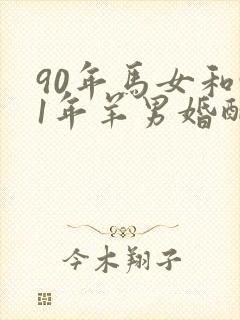 90年马女和
1年羊男婚配
今木翔子